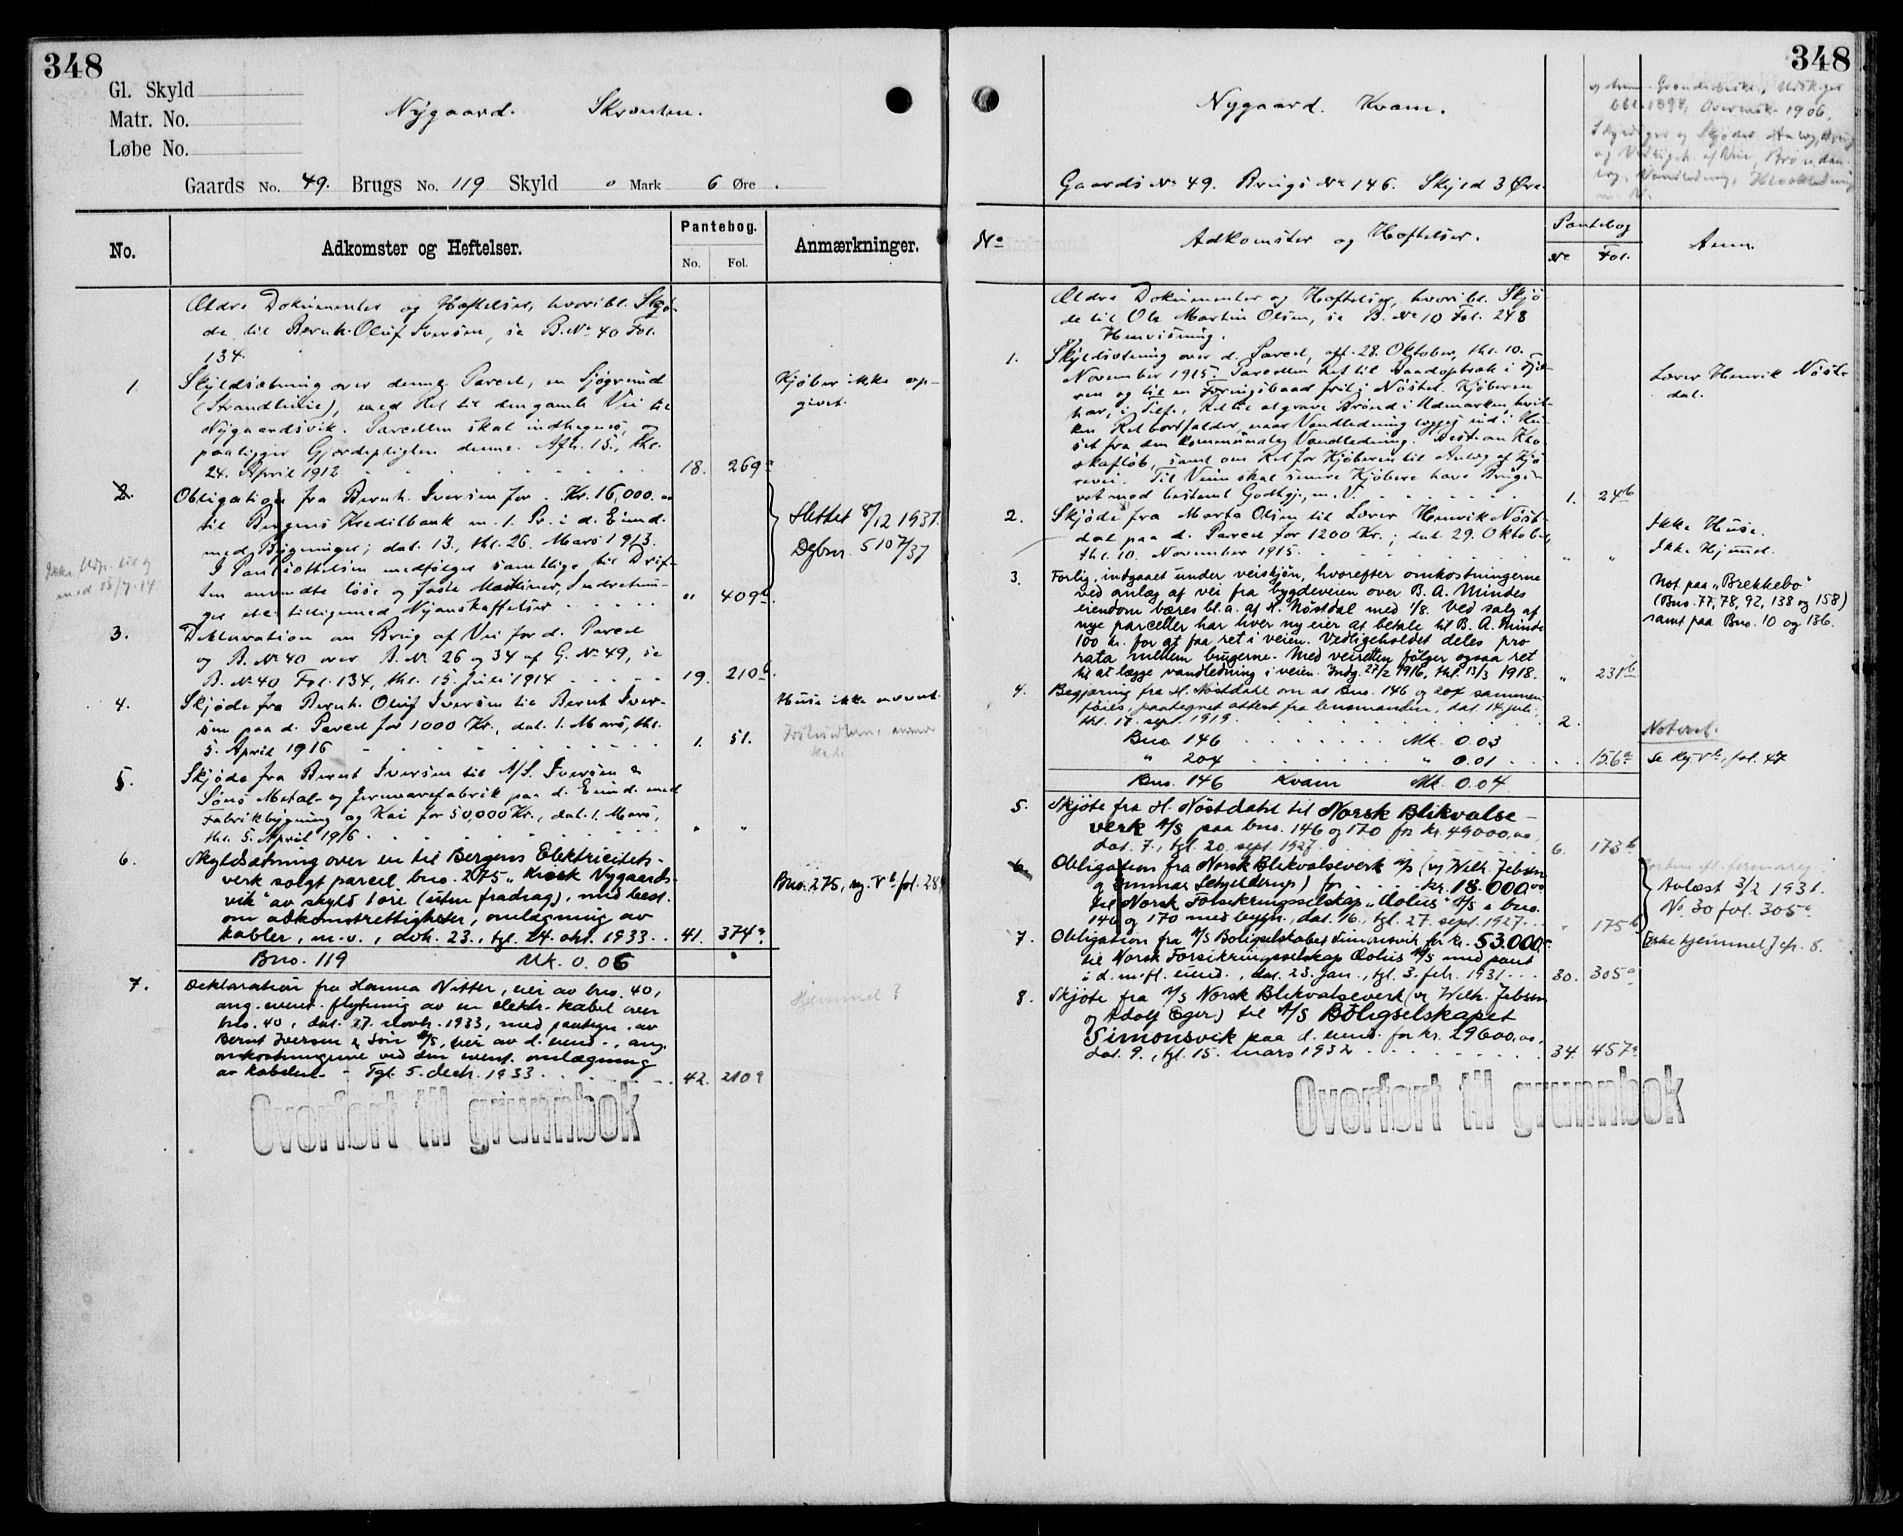 348
Gl. Skyld
Matr. No.
Løbe No.
Nygaard. Skrænten.
Gaards No. 49. Brugs No. 119 Skyld 0 Mark 6 Øre.
No.
Adkomster og Heftelser.
Pantebog.
No. Fol.
Anmærkninger.
Ældre Dokumenter og Hæftelser, hvoribl. Skjø-
de til Bernh. Oluf Iversen, se B. No 40 Fol.
134.
1. Skyldsætning over denne Parcel, en Sjøgrund
(Strandlinie), med Ret til den gamle Vei til
Nygaardsvik. Parcellen skal indhegnes, og
paaligger Gjerdepligten denne. Afh. 15., thl.
24. April 1912 18. 269a
Kjøber ikke op-
givet.
2. Obligation fra Bernh. Iversen for Kr. 16,000.00
til Bergens Kreditbank m. 1. Pr. i d. Eiend.
med Bygninger; dat. 13., thl. 26. Mars 1913.
I Pantsættelsen medfølger samtlige til Drif-
ten anvendte løse og faste Maskiner, Indretnin-
ger etc. tilligemed Nyanskaffelser " 409b
Slettet 8/12 1937.
Dgbnr. 5107/37
Ikke
3. Deklaration om Brug af Vei for d. Parcel
og B. No 40 over B. No 26 og 34 af G. No 49, se
B. No 40 Fol. 134, thl. 15. Juli 1914 19. 210b
4. Skjøde fra Bernh. Oluf Iversen til Bernt Iver-
sen paa d. Parcel for 1000 Kr., dat. 1. Mars, thl.
5. April 1916 1. 51.
Huse ikke nævnt.
5. Skjøde fra Bernt Iversen til A/S. Iversen &
Søns Metal- og Jernvarefabrik paa d. Eiend. med
Fabrikbygning og Kai for 50,000 Kr., dat. 1. Mars,
thl. 5. April 1916 " "
6. Skyldsætning over en til Bergens Elektricitets-
verk solgt parcel bno. 275 „Kiosk Nygaards-
vik" av skyld 1 øre (uten fradrag), med best.
om adkomstrettigheter, omlægning av
kabler, m.v., avh. 23., tgl. 24. okt. 1933 41. 374a
Bno. 119 Mk. 0.06
Bno. 275, reg. Vb fol. 28
7. Deklaration fra Hanna Nitter, eier av bno. 40,
ang. event. flytning av en elektr. kabel over
bno. 40, dat. 17. novbr. 1933, med paategn. av
Bernt Iversen & Søn A/S, eier av d. eiend., ang.
omkostningene ved den event. omlægning
av kabelen. - Tgl. 5. decbr. 1933 42. 210a
Hjemmel?
Overført til grunnbok
348
Nygaard. Kvam.
Gaards No 49. Brugs No 146. Skyld 3 Øre.
No
Adkomster og Hæftelser.
Pantebog
No Fol.
Anm.
Ældre Dokumenter og Hæftelser, hvoribl. Skjø-
de til Ole Martin Olsen, se B. No 10 Fol. 248
Henvisning.
1. Skyldsætning over d. Parcel, afh. 28. Oktober, thl. 10.
November 1915. Parcellen Ret til Baadoptræk i Fjæ-
ren og til en Færingsbaad frit i Nøstet. Kjøberen
har, i Tilf., Ret til at grave Brønd i Udmarken, hvil-
ken Ret bortfalder, naar Vandledning lægges ind i Hu-
set fra den kommunale Vandledning. Best. om Klo-
akafløb, samt om Ret for Kjøberen til Anlæg af Kjø-
revei. Til Veien skal senere Kjøbere have Brugs-
ret mod bestemt Godtgj., m.V. 1. 24b
Lærer Henrik Nøst-
dal.
2. Skjøde fra Marta Olsen til Lærer Henrik Nøst-
dal paa d. Parcel for 1200 Kr.; dat. 29. Oktober,
thl. 10. November 1915. " "
Ikke Huse.
Ikke Hjemmel.
3. Forlig, indgaaet under veiskjøn, hvorefter omkostningerne
ved anlæg af vei fra bygdeveien over B. A. Mindes
eiendom bæres bl.a. af H. Nøstdal med 1/8. Ved salg af
nye parceller har hver ny eier at betale til B. A. Minde
100 kr. for at faa ret i veien. Vedligeholdet deles pro
rata mellem brugerne. Med veiretten følger ogsaa ret
til at lægge vandledning i veien. Indg. 27/2 1916, thl. 13/3 1918. " 231b
Not. paa „Brekkebo"
(Bno. 77, 78, 92, 138 og 158)
samt paa Bno. 10 og 136.
4. Begjæring fra H. Nøstdahl om at Bno. 146 og 204 sammen-
føies, paategnet attest fra lensmanden, dat. 14. juli,
thl. 17. sept. 1919. 2.
Bno 146 Mk. 0.03
" 204 " 0.01 156a
Bno. 146 Kvam Mk. 0.04
Noteret.
5. Skjøte fra H. Nøstdahl til Norsk Blikvalse-
verk A/S paa bno. 146 og 170 for kr. 49000,00,
dat. 7., tgl. 20. sept. 1927. 6. 173b
6. Obligation fra Norsk Blikvalseverk A/S (v/ Wilh. Jebsen
og Gunnar Schjelderup) for kr. 18.000,00
til Norsk Forsikringsselskap „Æolus" A/S i bno.
146 og 170 med bygn., dat. 16., tgl. 27. sept. 1927. " 175b
Avlæst 3/2 1931.
No. 30 fol. 305a
7. Obligation fra A/S Boligselskabet Simonsvik for kr. 53.000
til Norsk Forsikringsselskap Æolus A/S med pant
i d. m.fl. eiend., dat. 23. jan., tgl. 3. feb. 1931 30. 305a
[Ikke hjemmel] cfr. 8.
8. Skjøte fra A/S Norsk Blikvalseverk (v/ Wilh. Jebsen
og Adolf Eger) til A/S Boligselskapet
Simonsvik paa d. eiend. for kr. 29600,00,
dat. 9., tgl. 15. mars 1932 34. 457a
Overført til grunnbok